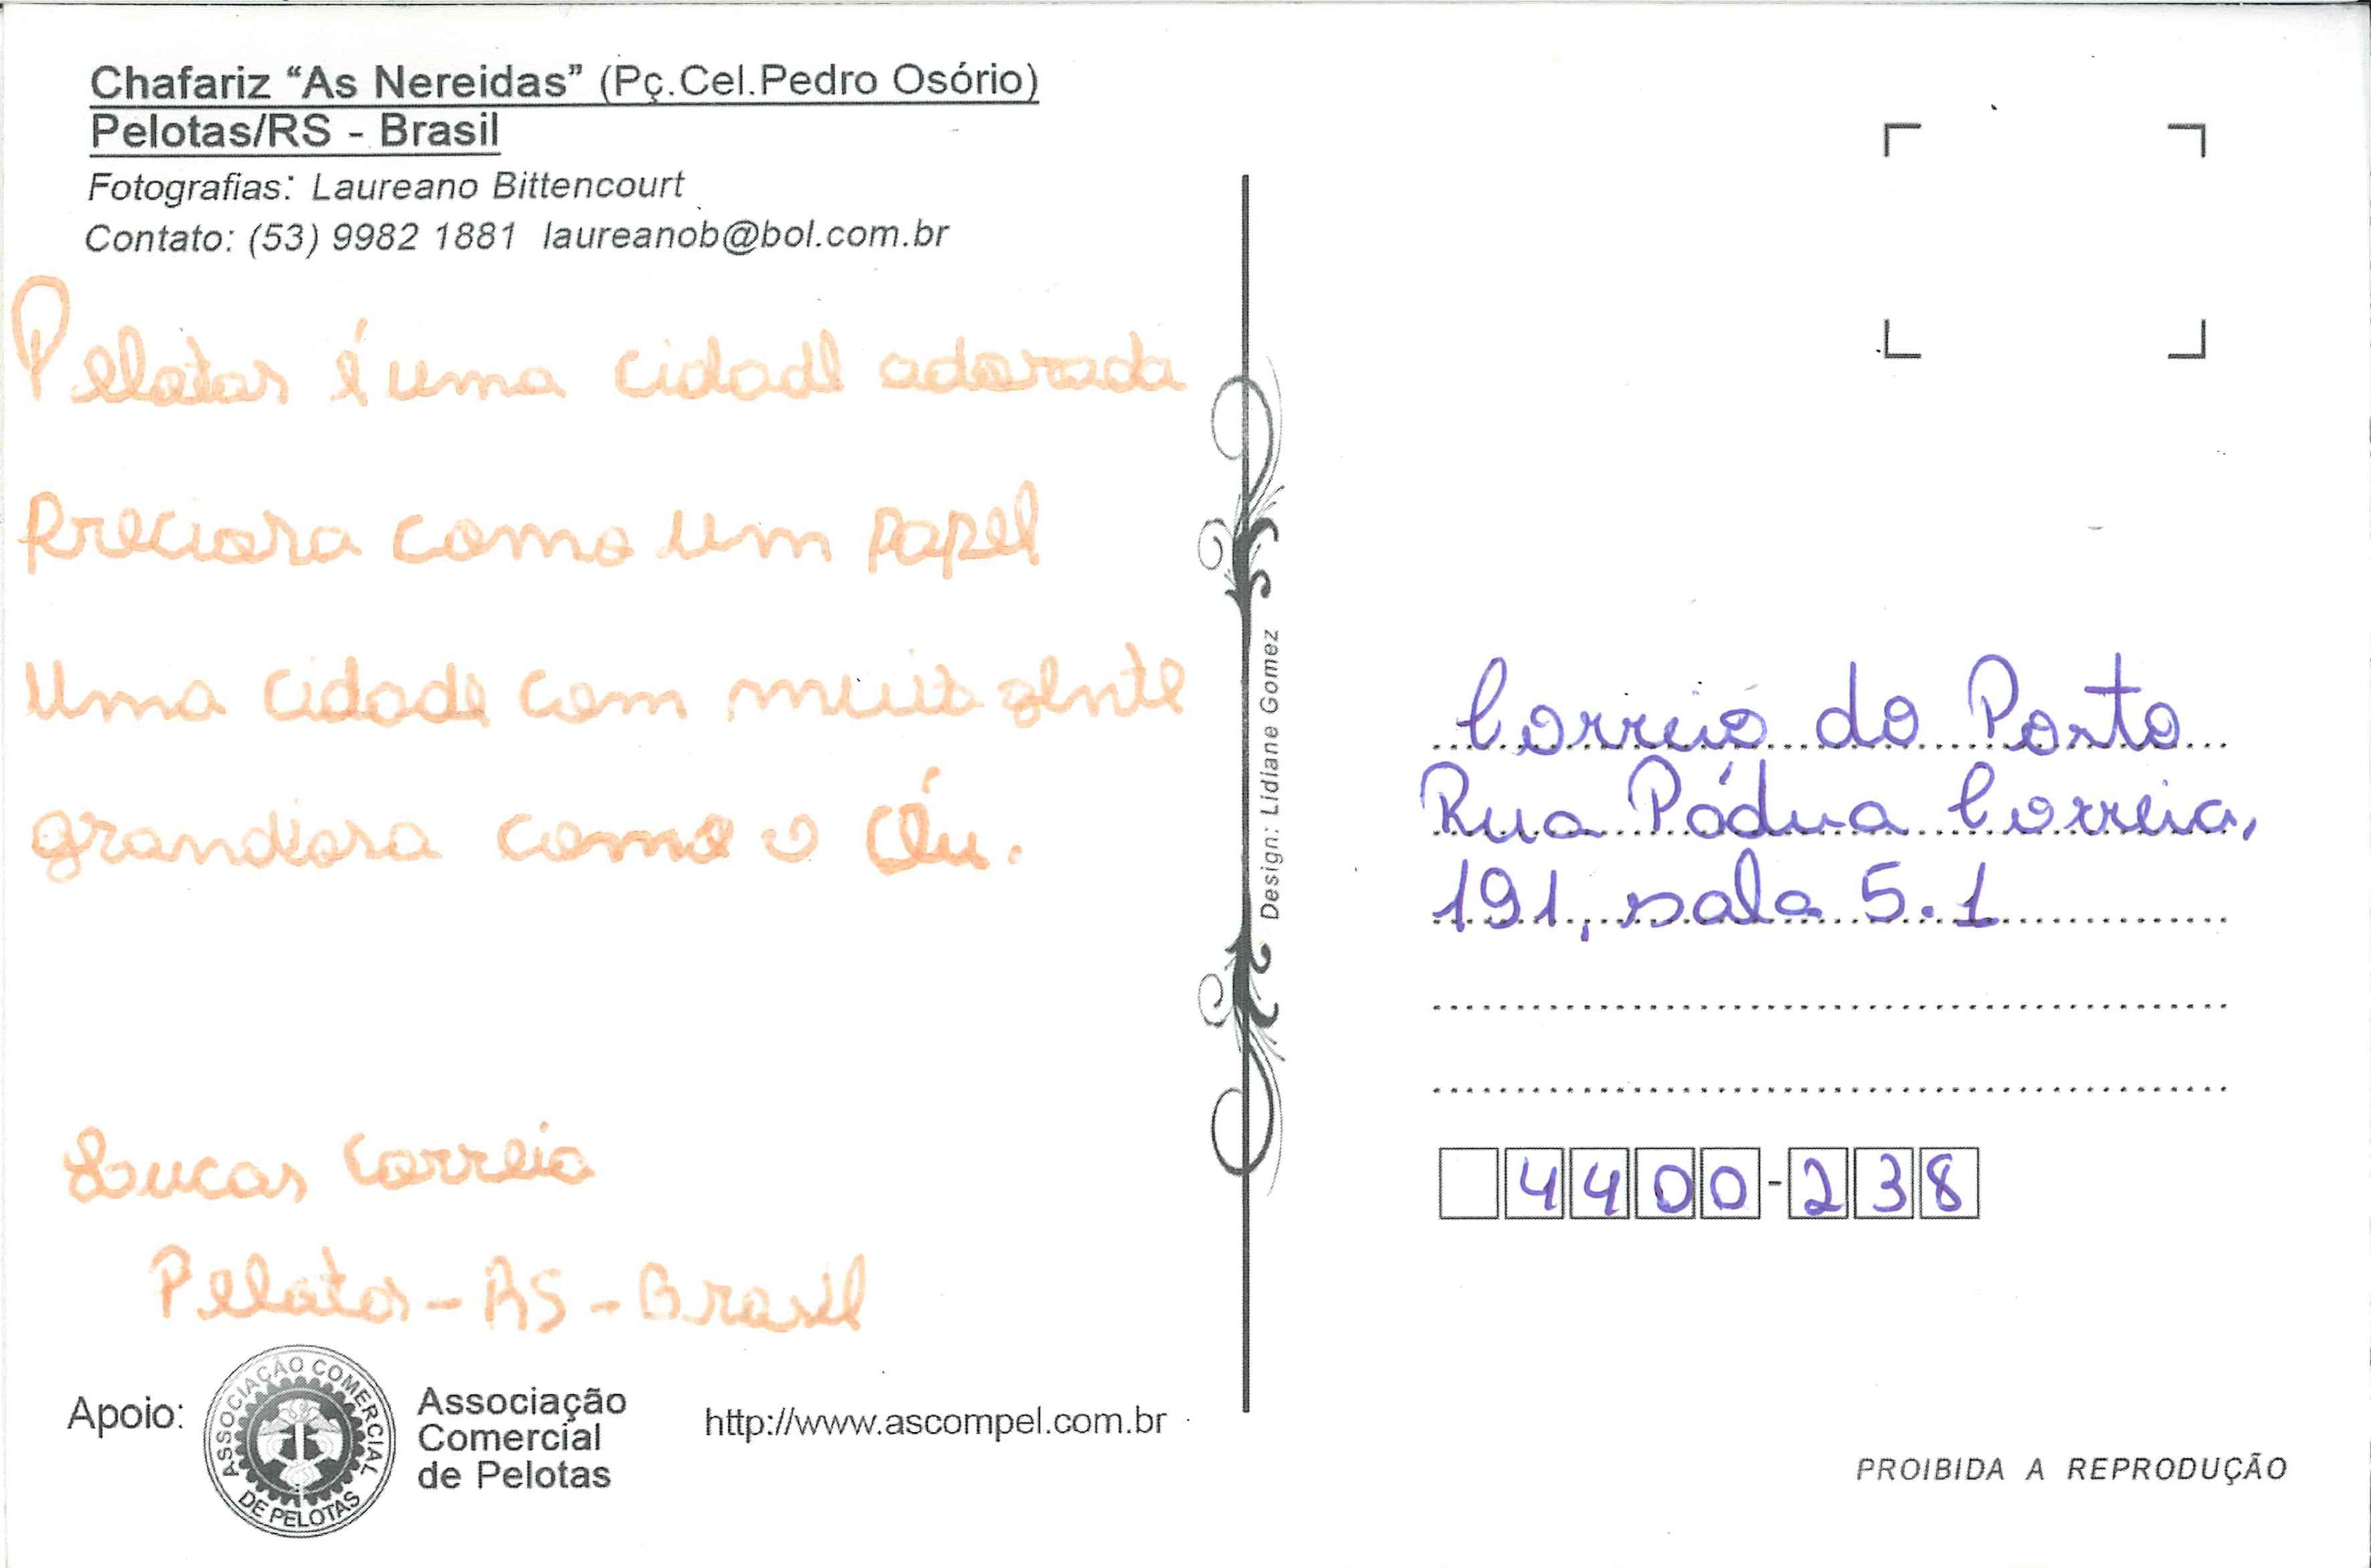 Chafariz “As Nereidas” (Pç.Cel.Pedro Osório)
Pelotas/RS - Brasil
Fotografias: Laureano Bittencourt
Contato: (53) 9982 1881 laureanob@bol.com.br
Pelotas é uma cidade adorada
Preciosa como um papel
Uma cidade com muita gente
grandiosa como o Céu.
Lucas Correia
Pelotas - RS - Brasil
Apoio:
ASSOCIAÇÃO COMERCIAL
DE PELOTAS
Associação
Comercial
de Pelotas
http://www.ascompel.com.br
Design: Lidiane Gomez
Correio do Porto
Rua Pádua Correia,
191, sala 5.1
4400-238
PROIBIDA A REPRODUÇÃO